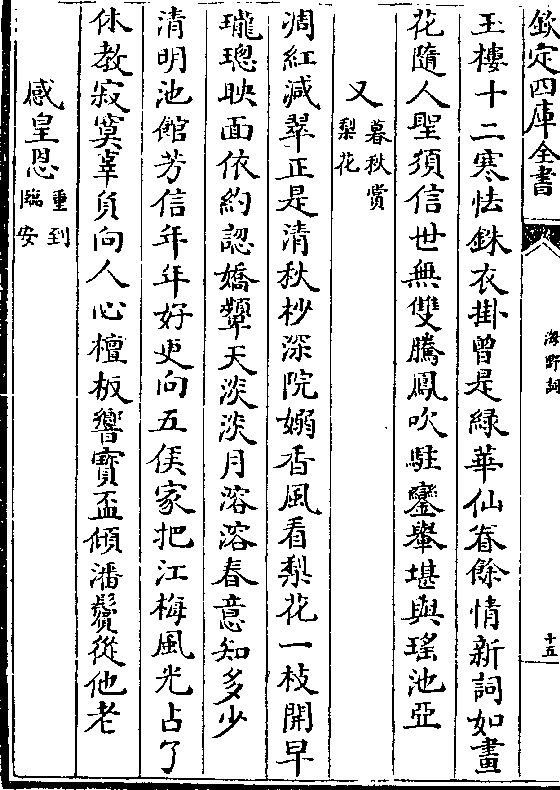 欽定四庫全書
海野詞
十五
玉樓十二寒怯銖衣掛曾是綠華仙眷餘情新詞如畫
花隨人聖須信世無雙騰鳳吹駐鸞轝堪與瑤池亞
又
暮秋賞
梨花
凋紅減翠正是清秋杪深院嫋香風看梨花一枝開早
瓏璁映面依約認嬌顰天淡淡月溶溶春意知多少
清明池館芳信年年好更向五侯家把江梅風光占了
休教寂寞辜負向人心檀板響寳盃傾潘鬢從他老
感皇恩
重到
臨安